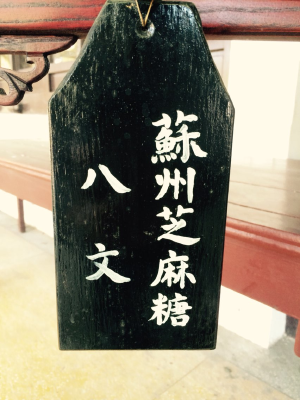 蘇州芝麻糖
八文